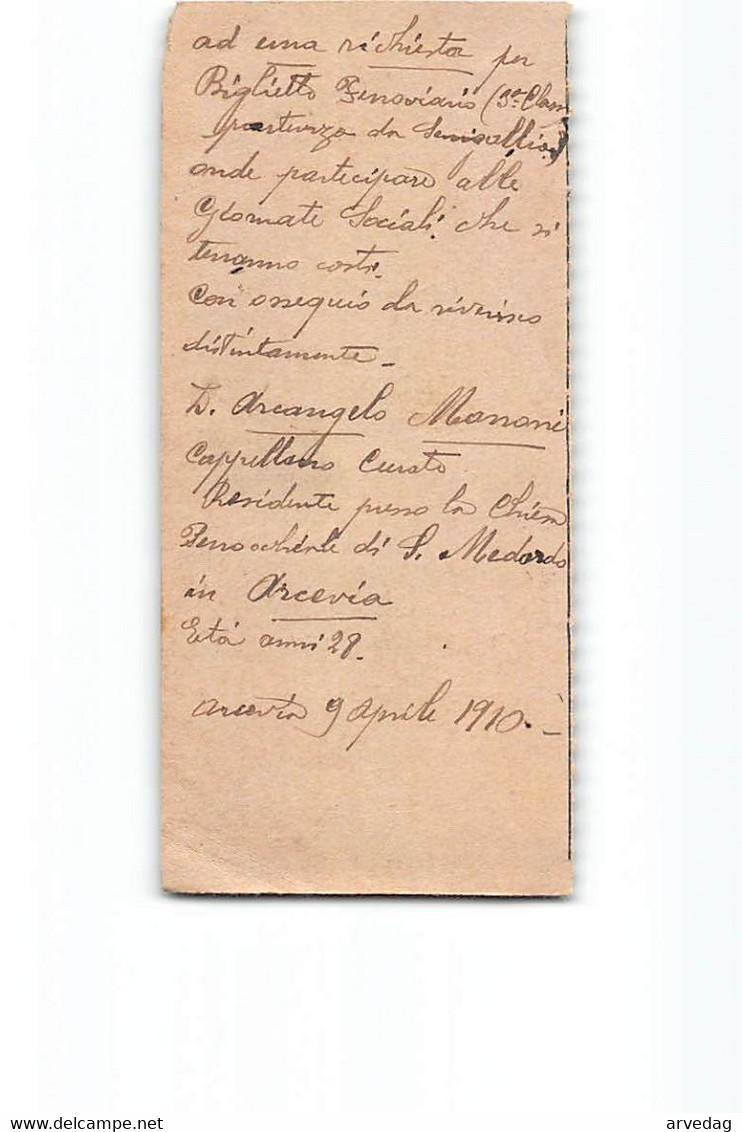 ad una richiesta per
Biglietto Ferroviario (3ª Class
partenza da Senigallia)
onde partecipare alle
Giornate Sociali che si
terranno costì.
Con ossequio la riverisco
distintamente -
D. Arcangelo Mannoni
Cappellano Curato
Residente presso la Chiesa
Parrocchiale di S. Medardo
in Arcevia
Età anni 28.
Arcevia 9 Aprile 1910. -
arvedag